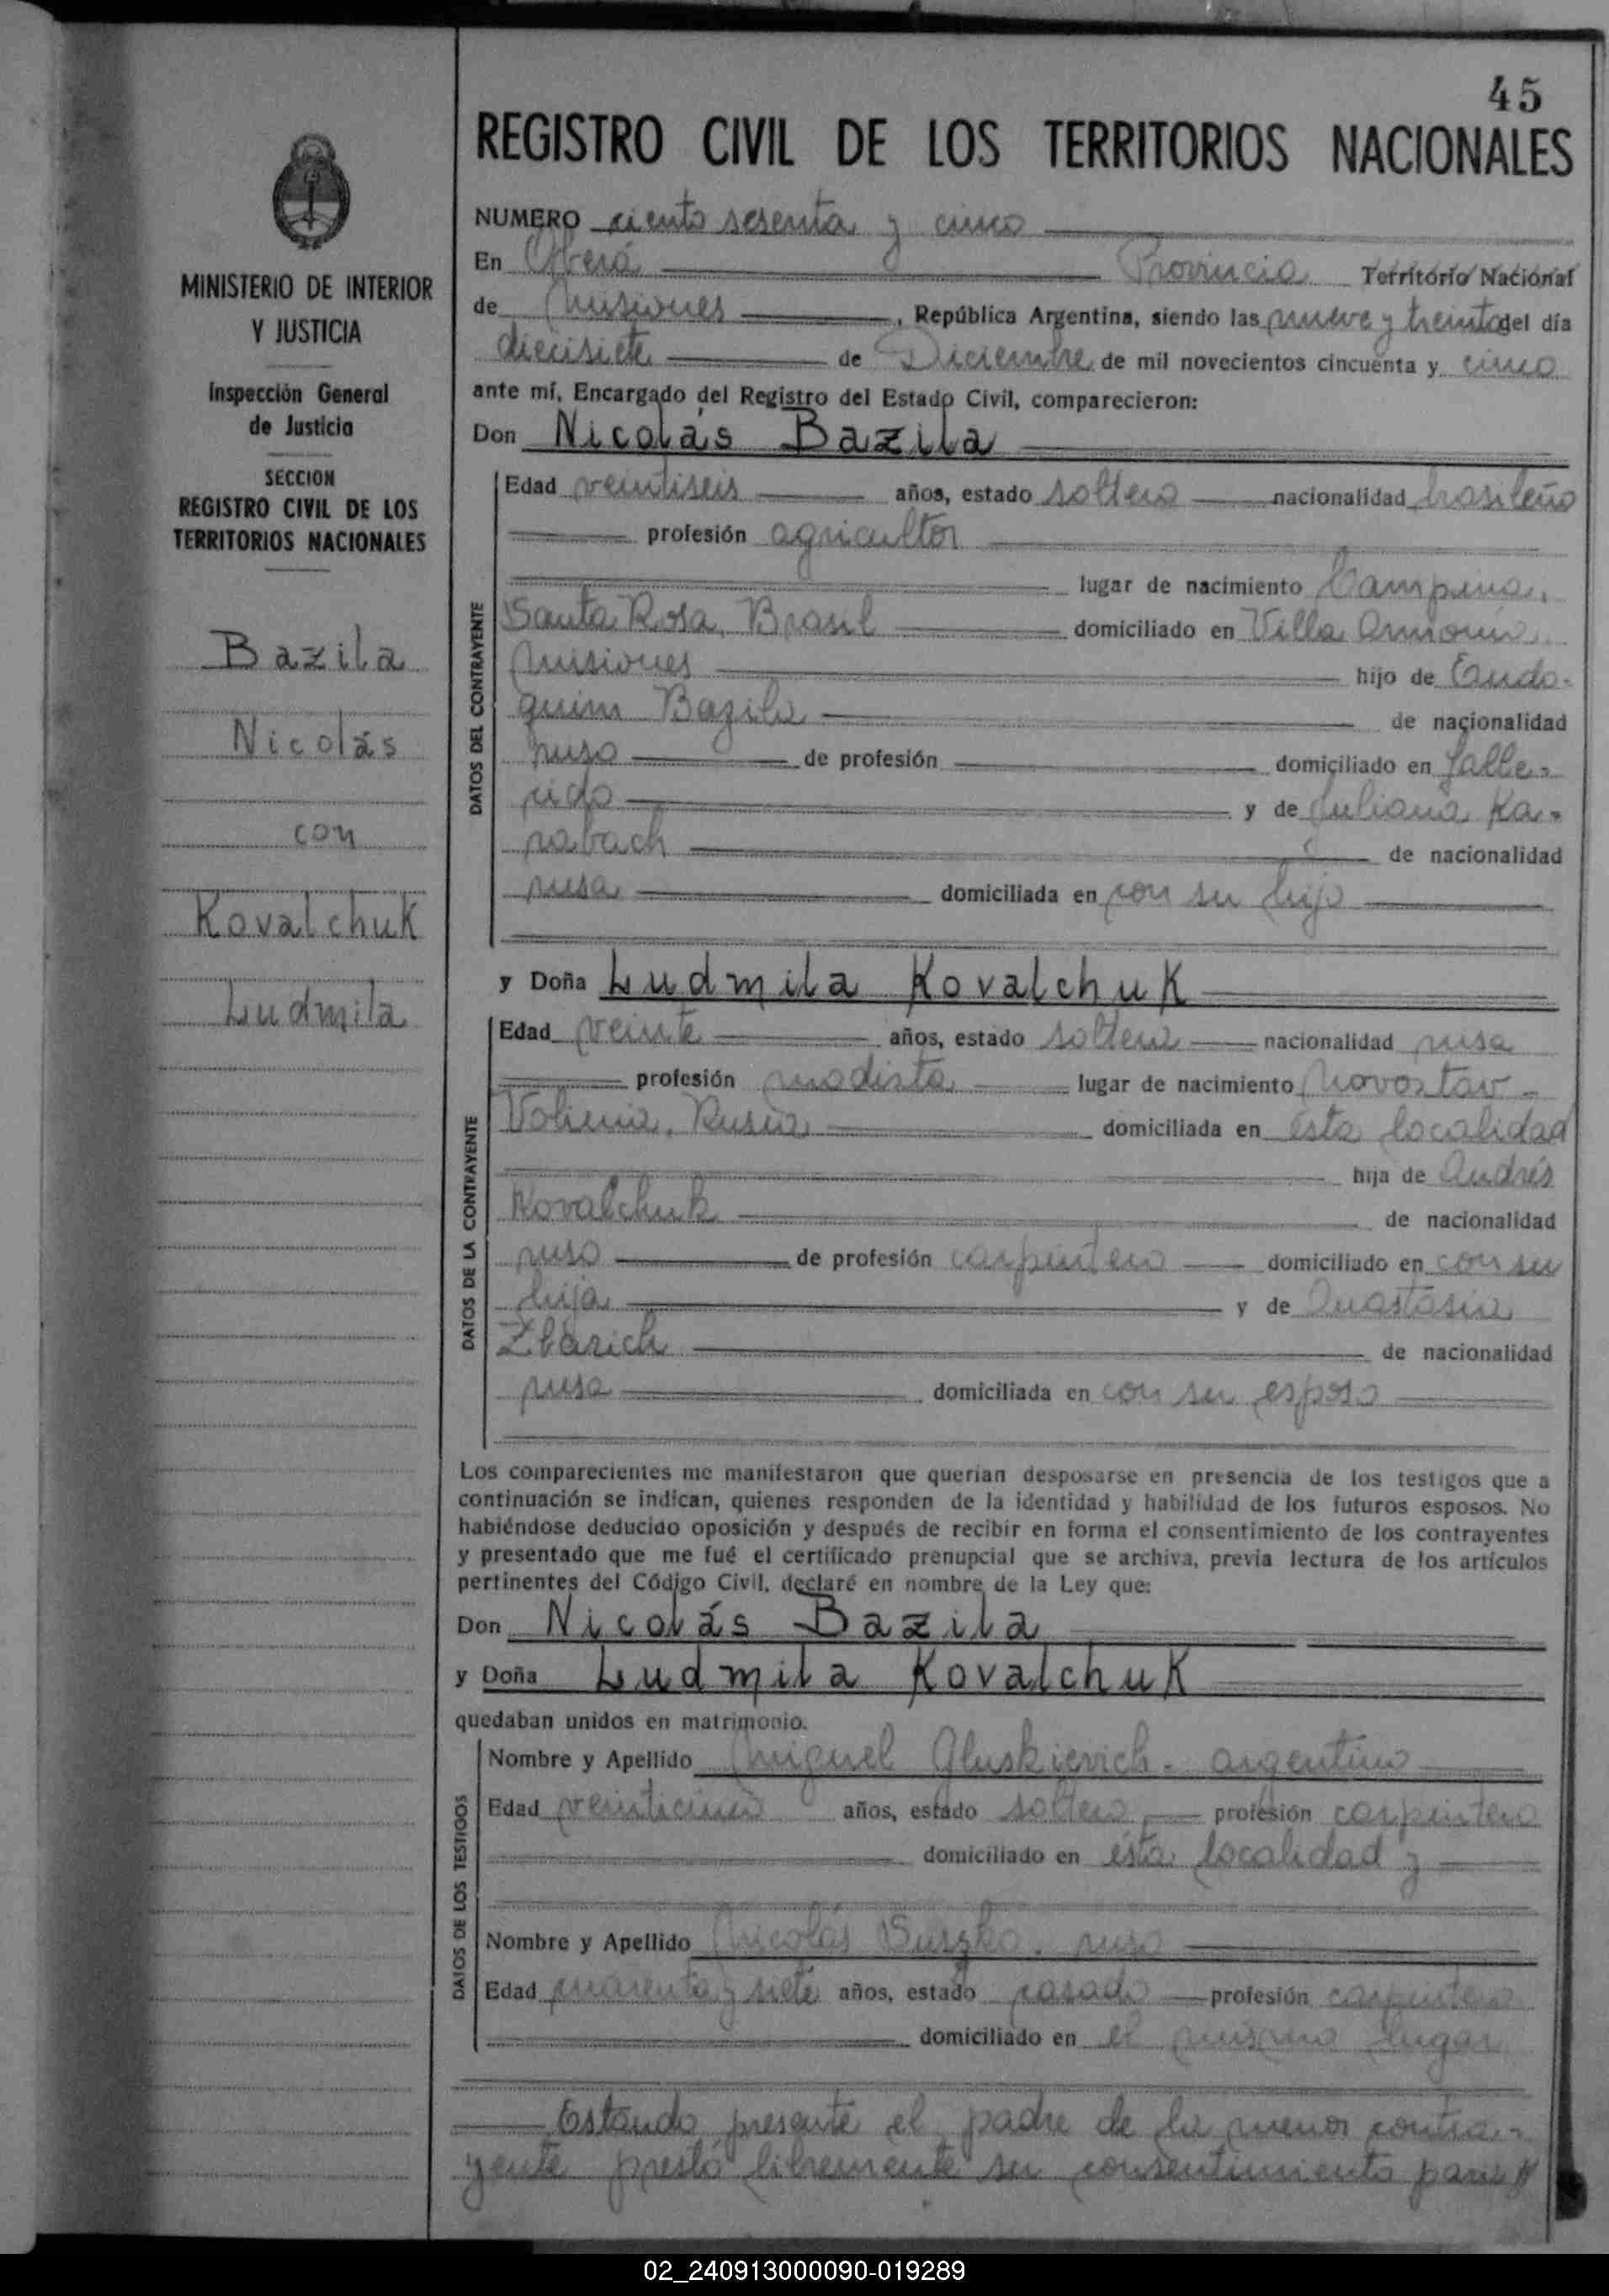 45
REGISTRO CIVIL DE LOS TERRITORIOS NACIONALES
MINISTERIO DE INTERIOR
Y JUSTICIA
Inspección General
de Justicia
SECCION
REGISTRO CIVIL DE LOS
TERRITORIOS NACIONALES
Bazila
Nicolás
con
Kovalchuk
Ludmila
NUMERO ciento sesenta y cinco
En Oberá Provincia Territorio Nacional
de Misiones, República Argentina, siendo las nueve y treinta del día
diecisiete de Diciembre de mil novecientos cincuenta y cinco
ante mí, Encargado del Registro del Estado Civil, comparecieron:
Don Nicolás Bazila
DATOS DEL CONTRAYENTE
Edad veintiseis años, estado soltero nacionalidad brasileño
profesión agricultor
lugar de nacimiento Campina,
Santa Rosa, Brasil domiciliado en Villa Armonía
Misiones hijo de Eudo-
quim Bazila de nacionalidad
ruso de profesión domiciliado en falle-
cido y de Juliana Ka-
rabach de nacionalidad
rusa domiciliada en con su hijo
y Doña Ludmila Kovalchuk
DATOS DE LA CONTRAYENTE
Edad veinte años, estado soltera nacionalidad rusa
profesión modista lugar de nacimiento Novostav-
Volinia, Rusia domiciliada en ésta localidad
hija de Andrés
Kovalchuk de nacionalidad
ruso de profesión carpintero domiciliado en con su
hija y de Anastasia
Zbarich de nacionalidad
rusa domiciliada en con su esposo
Los comparecientes me manifestaron que querían desposarse en presencia de los testigos que a
continuación se indican, quienes responden de la identidad y habilidad de los futuros esposos. No
habiéndose deducido oposición y después de recibir en forma el consentimiento de los contrayentes
y presentado que me fué el certificado prenupcial que se archiva, previa lectura de los artículos
pertinentes del Código Civil, declaré en nombre de la Ley que:
Don Nicolás Bazila
y Doña Ludmila Kovalchuk
quedaban unidos en matrimonio.
DATOS DE LOS TESTIGOS
Nombre y Apellido Miguel Gluskievich - argentino
Edad veinticinco años, estado soltero profesión carpintero
domiciliado en ésta localidad y
Nombre y Apellido Nicolás Buszko, ruso
Edad cuarenta y siete años, estado casado profesión carpintero
domiciliado en el mismo lugar
Estando presente el padre de la menor contra-
yente prestó libremente su consentimiento para
02_240913000090-019289